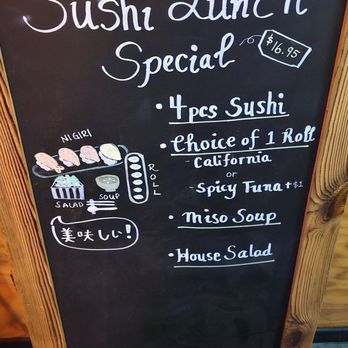 Sushi Lunch
Special
$16.95
• 4pcs Sushi
• Choice of 1 Roll
- California
or
- Spicy Tuna +$1
• Miso Soup
• House Salad
NIGIRI
ROLL
SALAD
SOUP
美味しい!